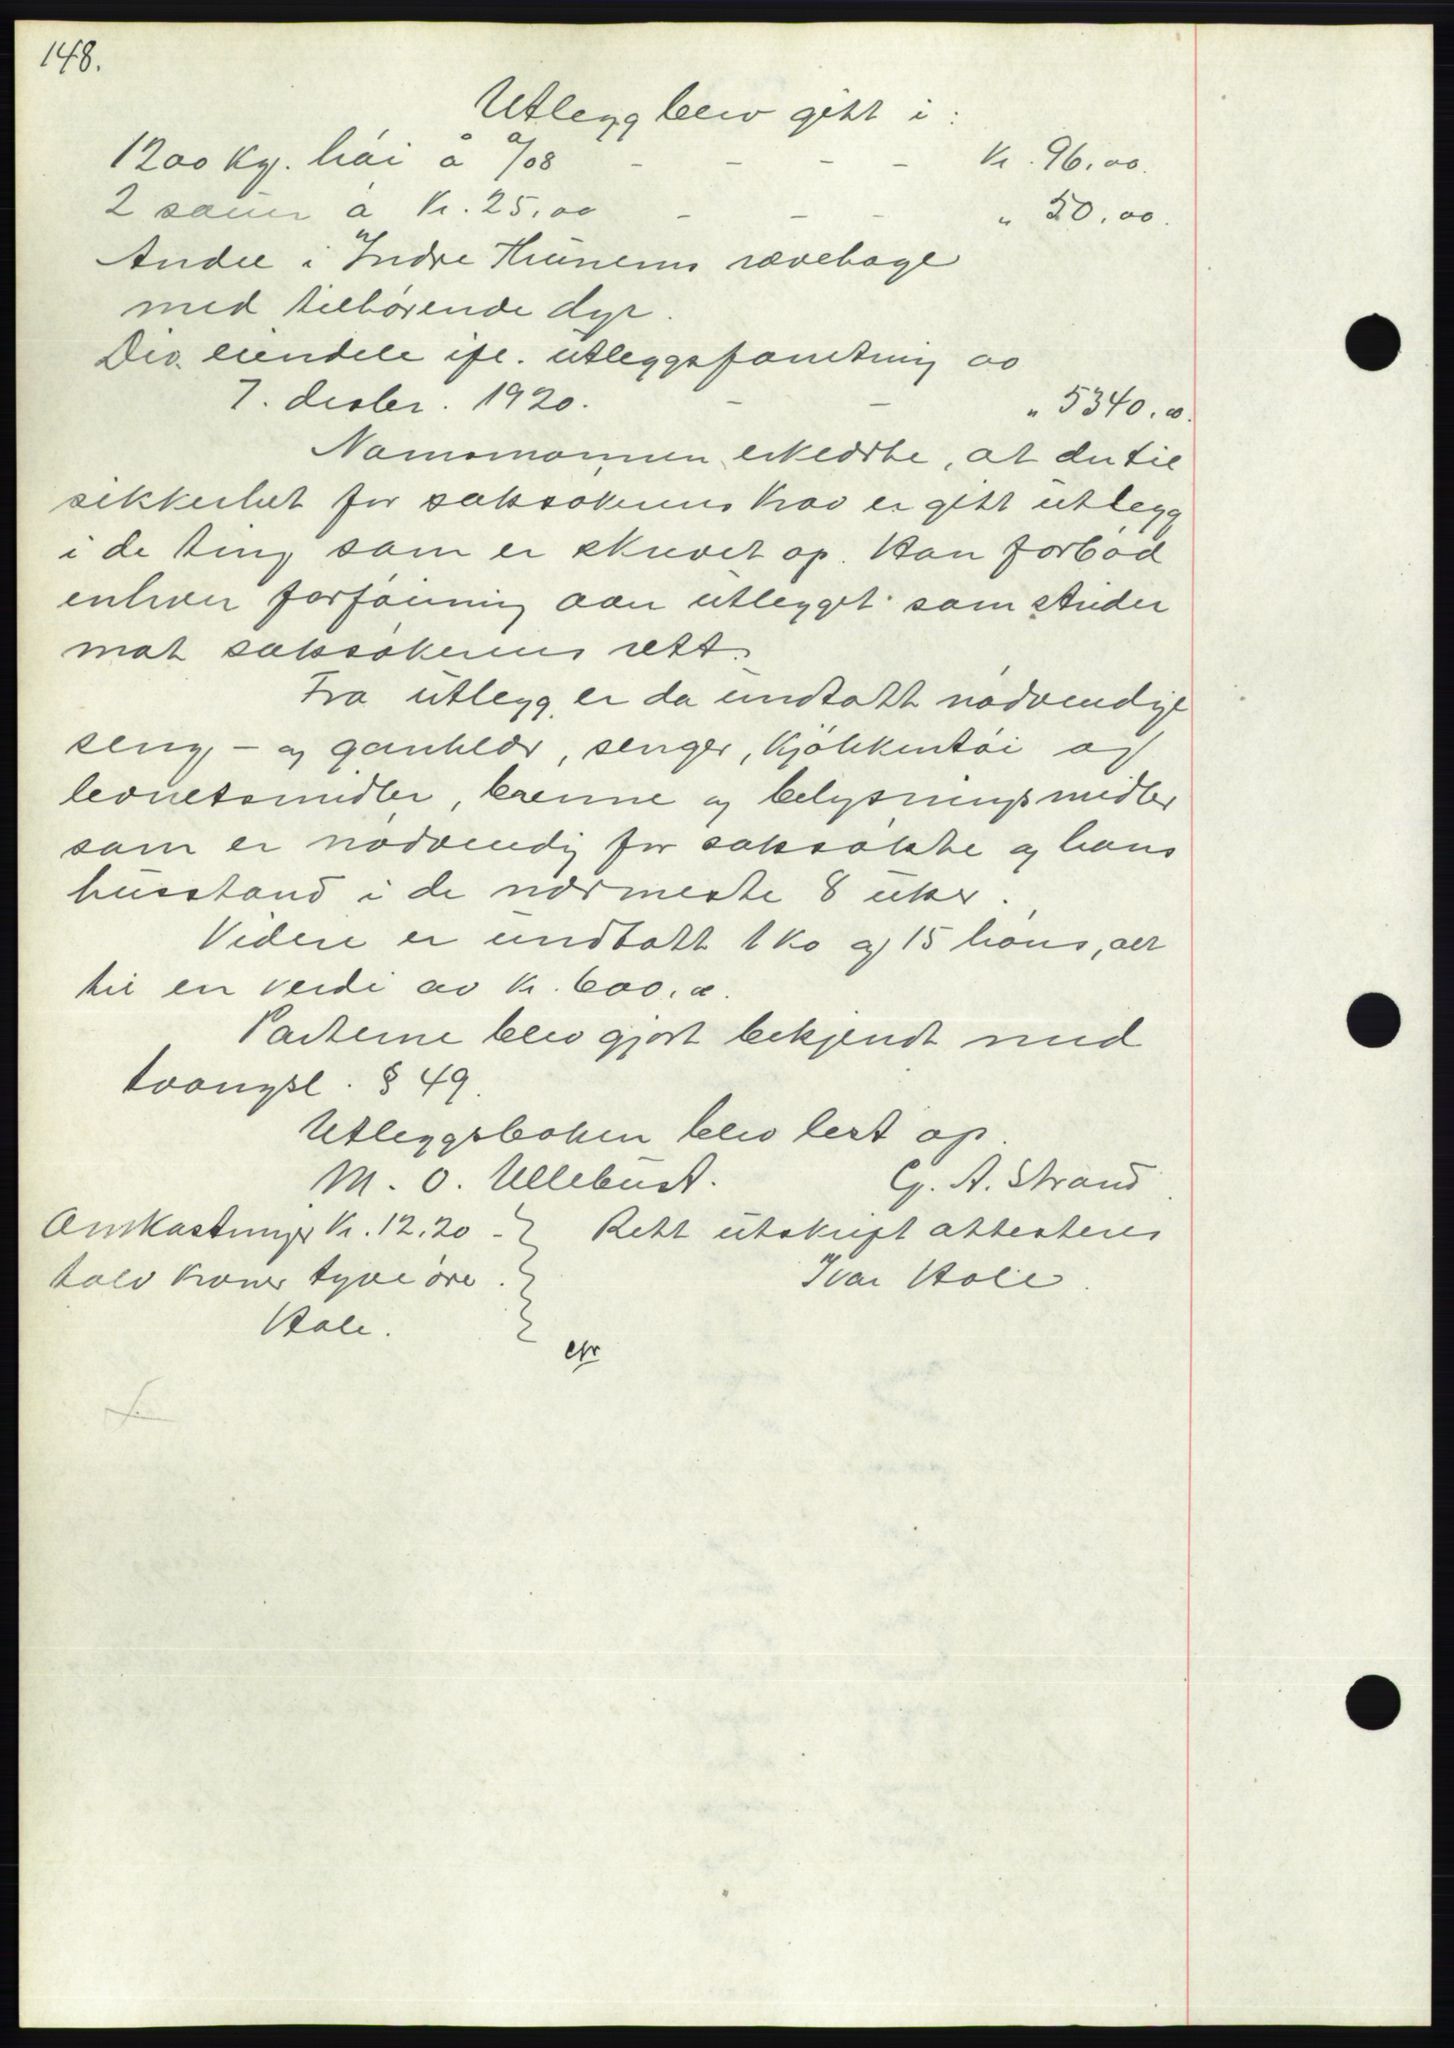 148.
Utlegg blev gitt i:
1200 kg. hói á 0/08 - - - - Kr. 96.00.
2 sauer á Kr. 25.00 - - - " 50.00.
Andel i Indre rævehage
med tilhørende dyr.
Div. eiendele ifl. utleggsforretning av
7. desbr. 1920. - - " 5340.00.
Namsmannen erklærte, at der til
sikkerhet for saksøkerens krav er gitt utlegg
i de ting som er skrevet op. Han forbód
enhver forføining over utlegget som strider
mot saksøkerens rett.
Fra utlegg er da undtatt nødvendige
seng- og gangklær, senger, kjøkkentøi og
levnetsmidler, brenne og belysningsmidler
som er nødvendig for saksøkte og hans
husstand i de nærmeste 8 uker.
Videre er undtatt 1 ko og 15 høns, alt
til en verdi av kr. 600.00.
Parterne blev gjort bekjendt med
tvangsl. § 49.
Utleggsboken blev lest op.
M. O. Ullebust. G. A. Strand
Omkastninger Kr. 12.20 - } Rett utskrift attesteres
tolv kroner tyve øre. } Ivar Hole.
Hole. }